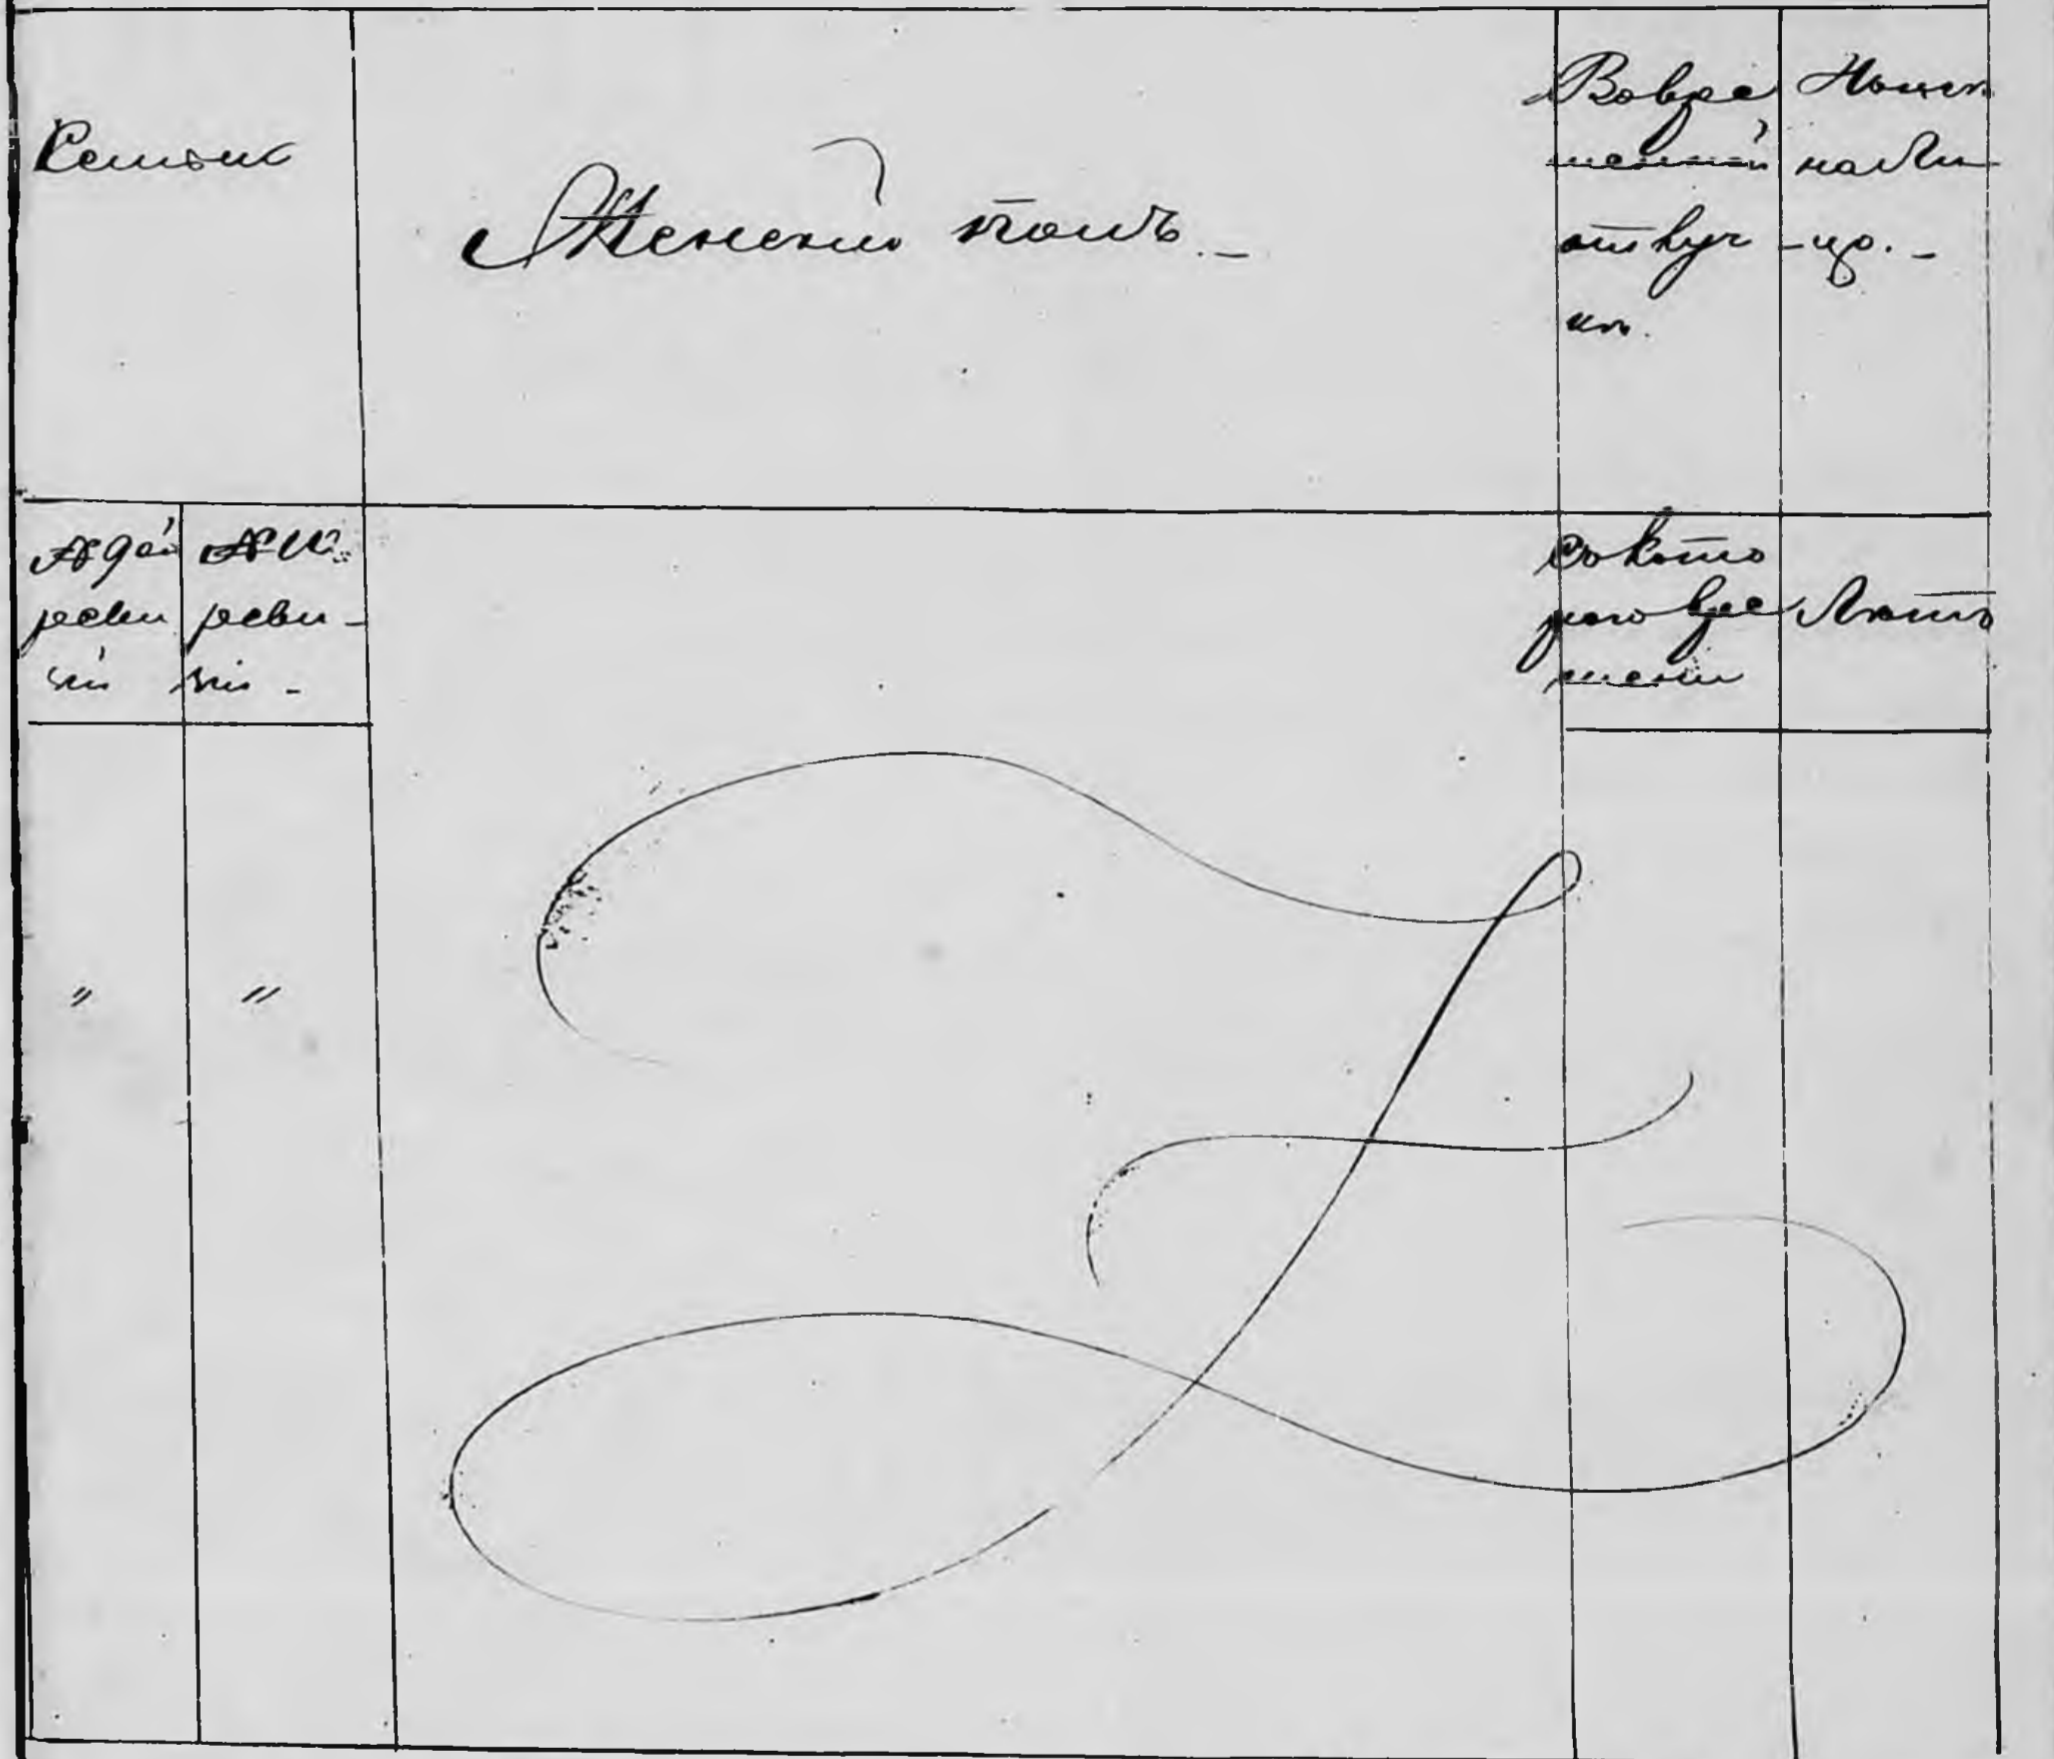 Семьи
Женскій полъ. –
Во вре
менной
отлуч
кѣ.
Нынѣ
на ли
– цо. –
№ 9ой
реви
зіи
№ 10.
реви –
зіи –
Съ кото
раго вре
мени
Лѣтъ
" "